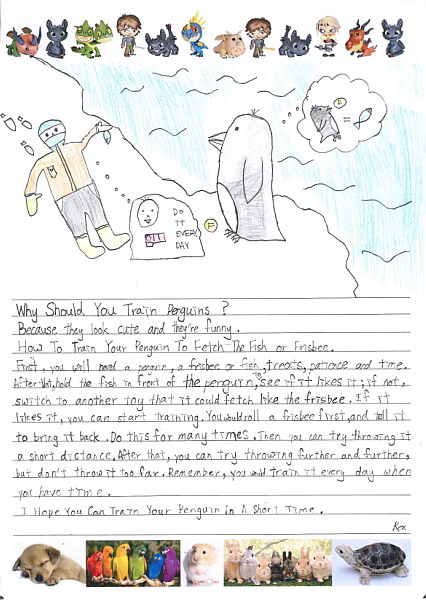 DO
IT
EVERY
DAY
F
F
=
Why Should You Train Penguins ?
Because they look cute and they're funny.
How To Train Your Penguin To Fetch The Fish or Frisbee.
First, you will need a penguin, a frisbee or fish, treats, patience and time.
After that, hold the fish in front of the penguin, to see if it likes it; if not,
switch to another toy that it could fetch like the frisbee. If it
likes it, you can start training. You would roll a frisbee first, and tell it
to bring it back. Do this for many times. Then you can try throwing it
a short distance. After that, you can try throwing further and further,
but don't throw it too far. Remember, you would train it every day when
you have time.
I Hope You Can Train Your Penguin in A Short Time.